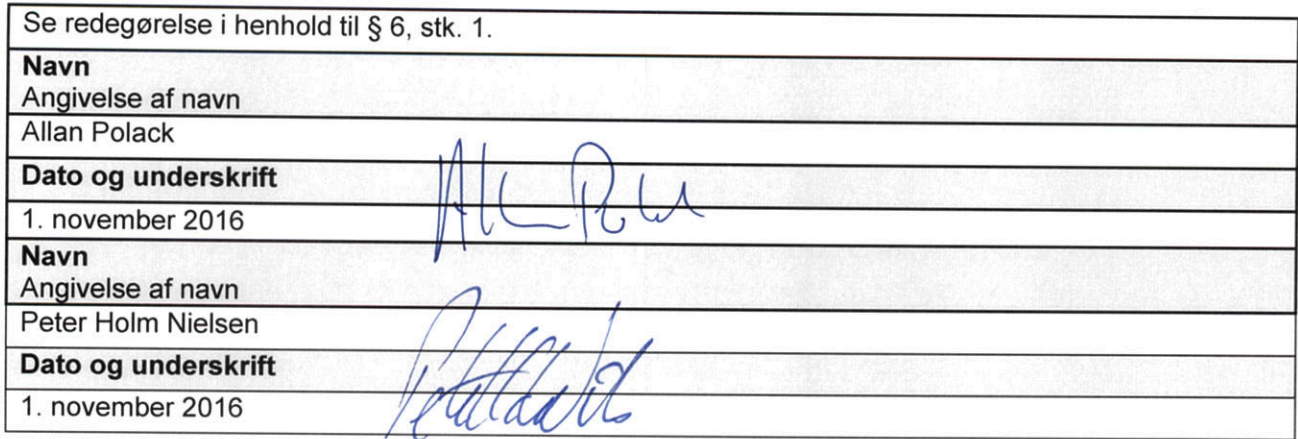 Se redegørelse i henhold til § 6, stk. 1.
Navn
Angivelse af navn
Allan Polack
Dato og underskrift
1. november 2016
Navn
Angivelse af navn
Peter Holm Nielsen
Dato og underskrift
1. november 2016